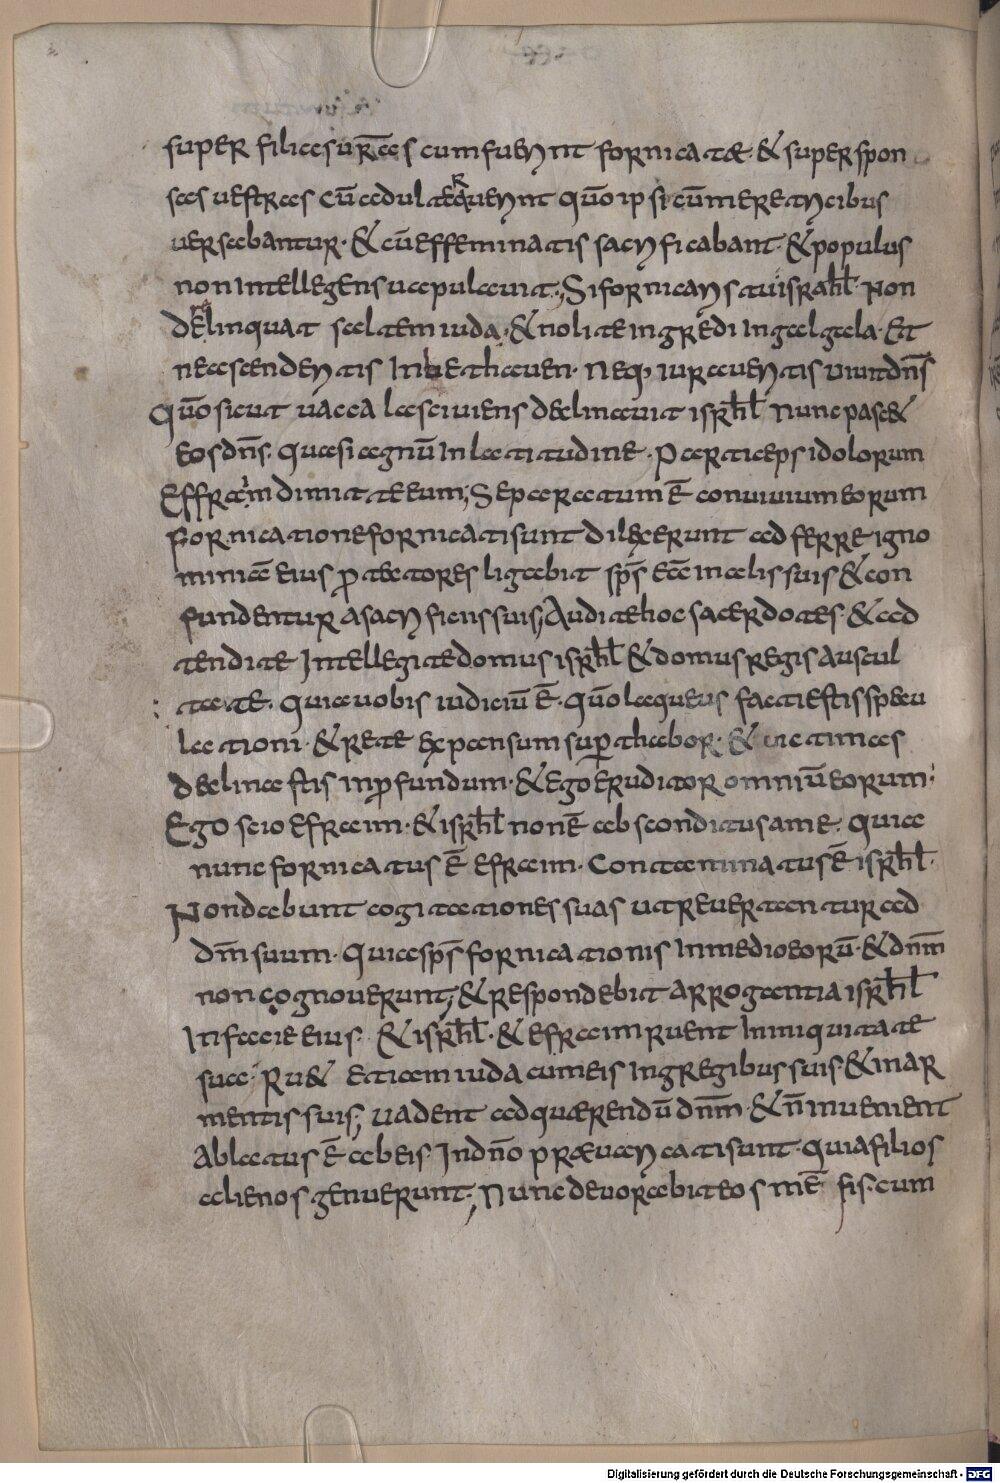 super filias urās cum fuerint fornicatæ · & super spon
sas uestras cū adulterauerint qūo ipsi cū meretricibus
uersabantur · & cū effeminatis sacrificabant · & populus
non intellegens uapulauit; Si fornicaris tu israhl · Non
delinquat saltem iuda · & nolite ingredi in galgala · Et
ne ascenderitis in bethauen · neq; iuraueritis uiuit dn̄s
Qūo sicut uacca lasciuiens declinauit isrl̄ Nunc pasc&
eos dn̄s · quasi agnū in latitudine · Particeps idolorum
Effraim dimitte eum; Separatum ē conuiuium eorum
Fornicatione fornicati sunt dilexerunt adferre igno
miniā eius ꝓtectores ligabit sp̄s eā in alis suis & con
fundentur a sacrificiis suis; Audite hoc sacerdotes · & ad
tendite Intellegite domus isrl̄ & domus regis auscul
tate · Quia uobis iudiciū ē · qūo laqueus facti estis specu
lationi · & rete expansum suꝑ thabor · & uictimas
declinastis in ꝓfundum · & ego eruditor omniū eorum ·
Ego scio efraim · & isrl̄ non ē absconditus a me · Quia
nunc fornicatus ē efraim · Contaminatus ē isrl̄ ·
Non dabunt cogitationes suas ut reuertantur ad
dm̄ suum · Quia sp̄s fornicationis in medio eorū · & dnm̄
non cognouerunt; & respondebit arrogantia isrl̄
In facie eius · & isrl̄ · & efraim ruent in iniquitate
sua · Ru& etiam iuda cum eis In gregibus suis · & in ar
mentis suis; uadent ad quærendū dnm̄ · & n̄ inuenient
Ablatus ē ab eis · In dn̄o præuaricati sunt · quia filios
alienos genuerunt; Nunc deuorabit eos mē̄sis · cum
Digitalisierung gefördert durch die Deutsche Forschungsgemeinschaft - DFG